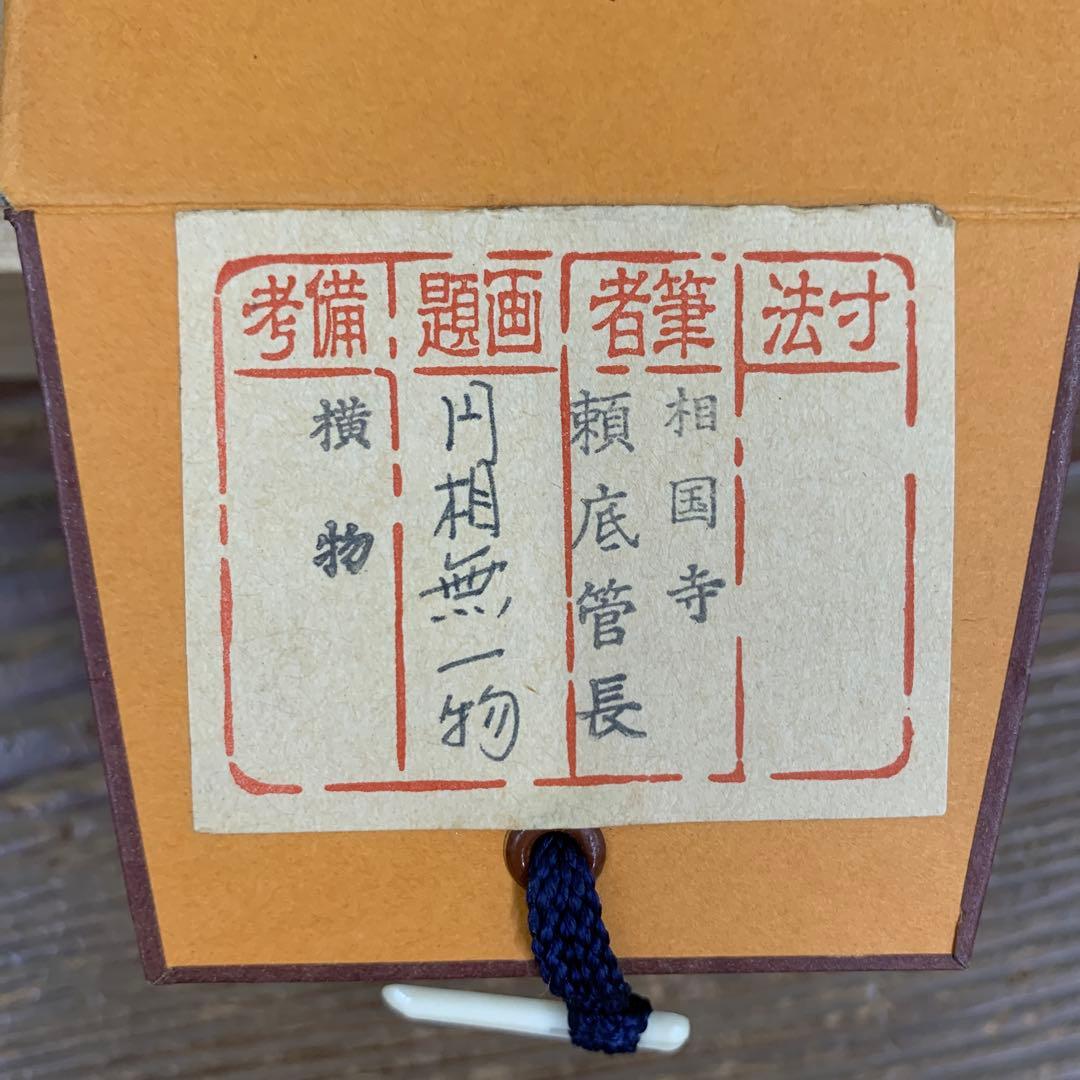 寸法
筆者
相国寺
頼底管長
画題
円相無一物
備考
横物